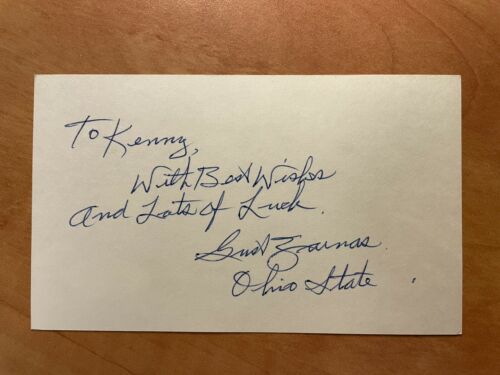 To Kenny,
With Best Wishes
And Lots of Luck.
Gust Zarnas.
Ohio State.